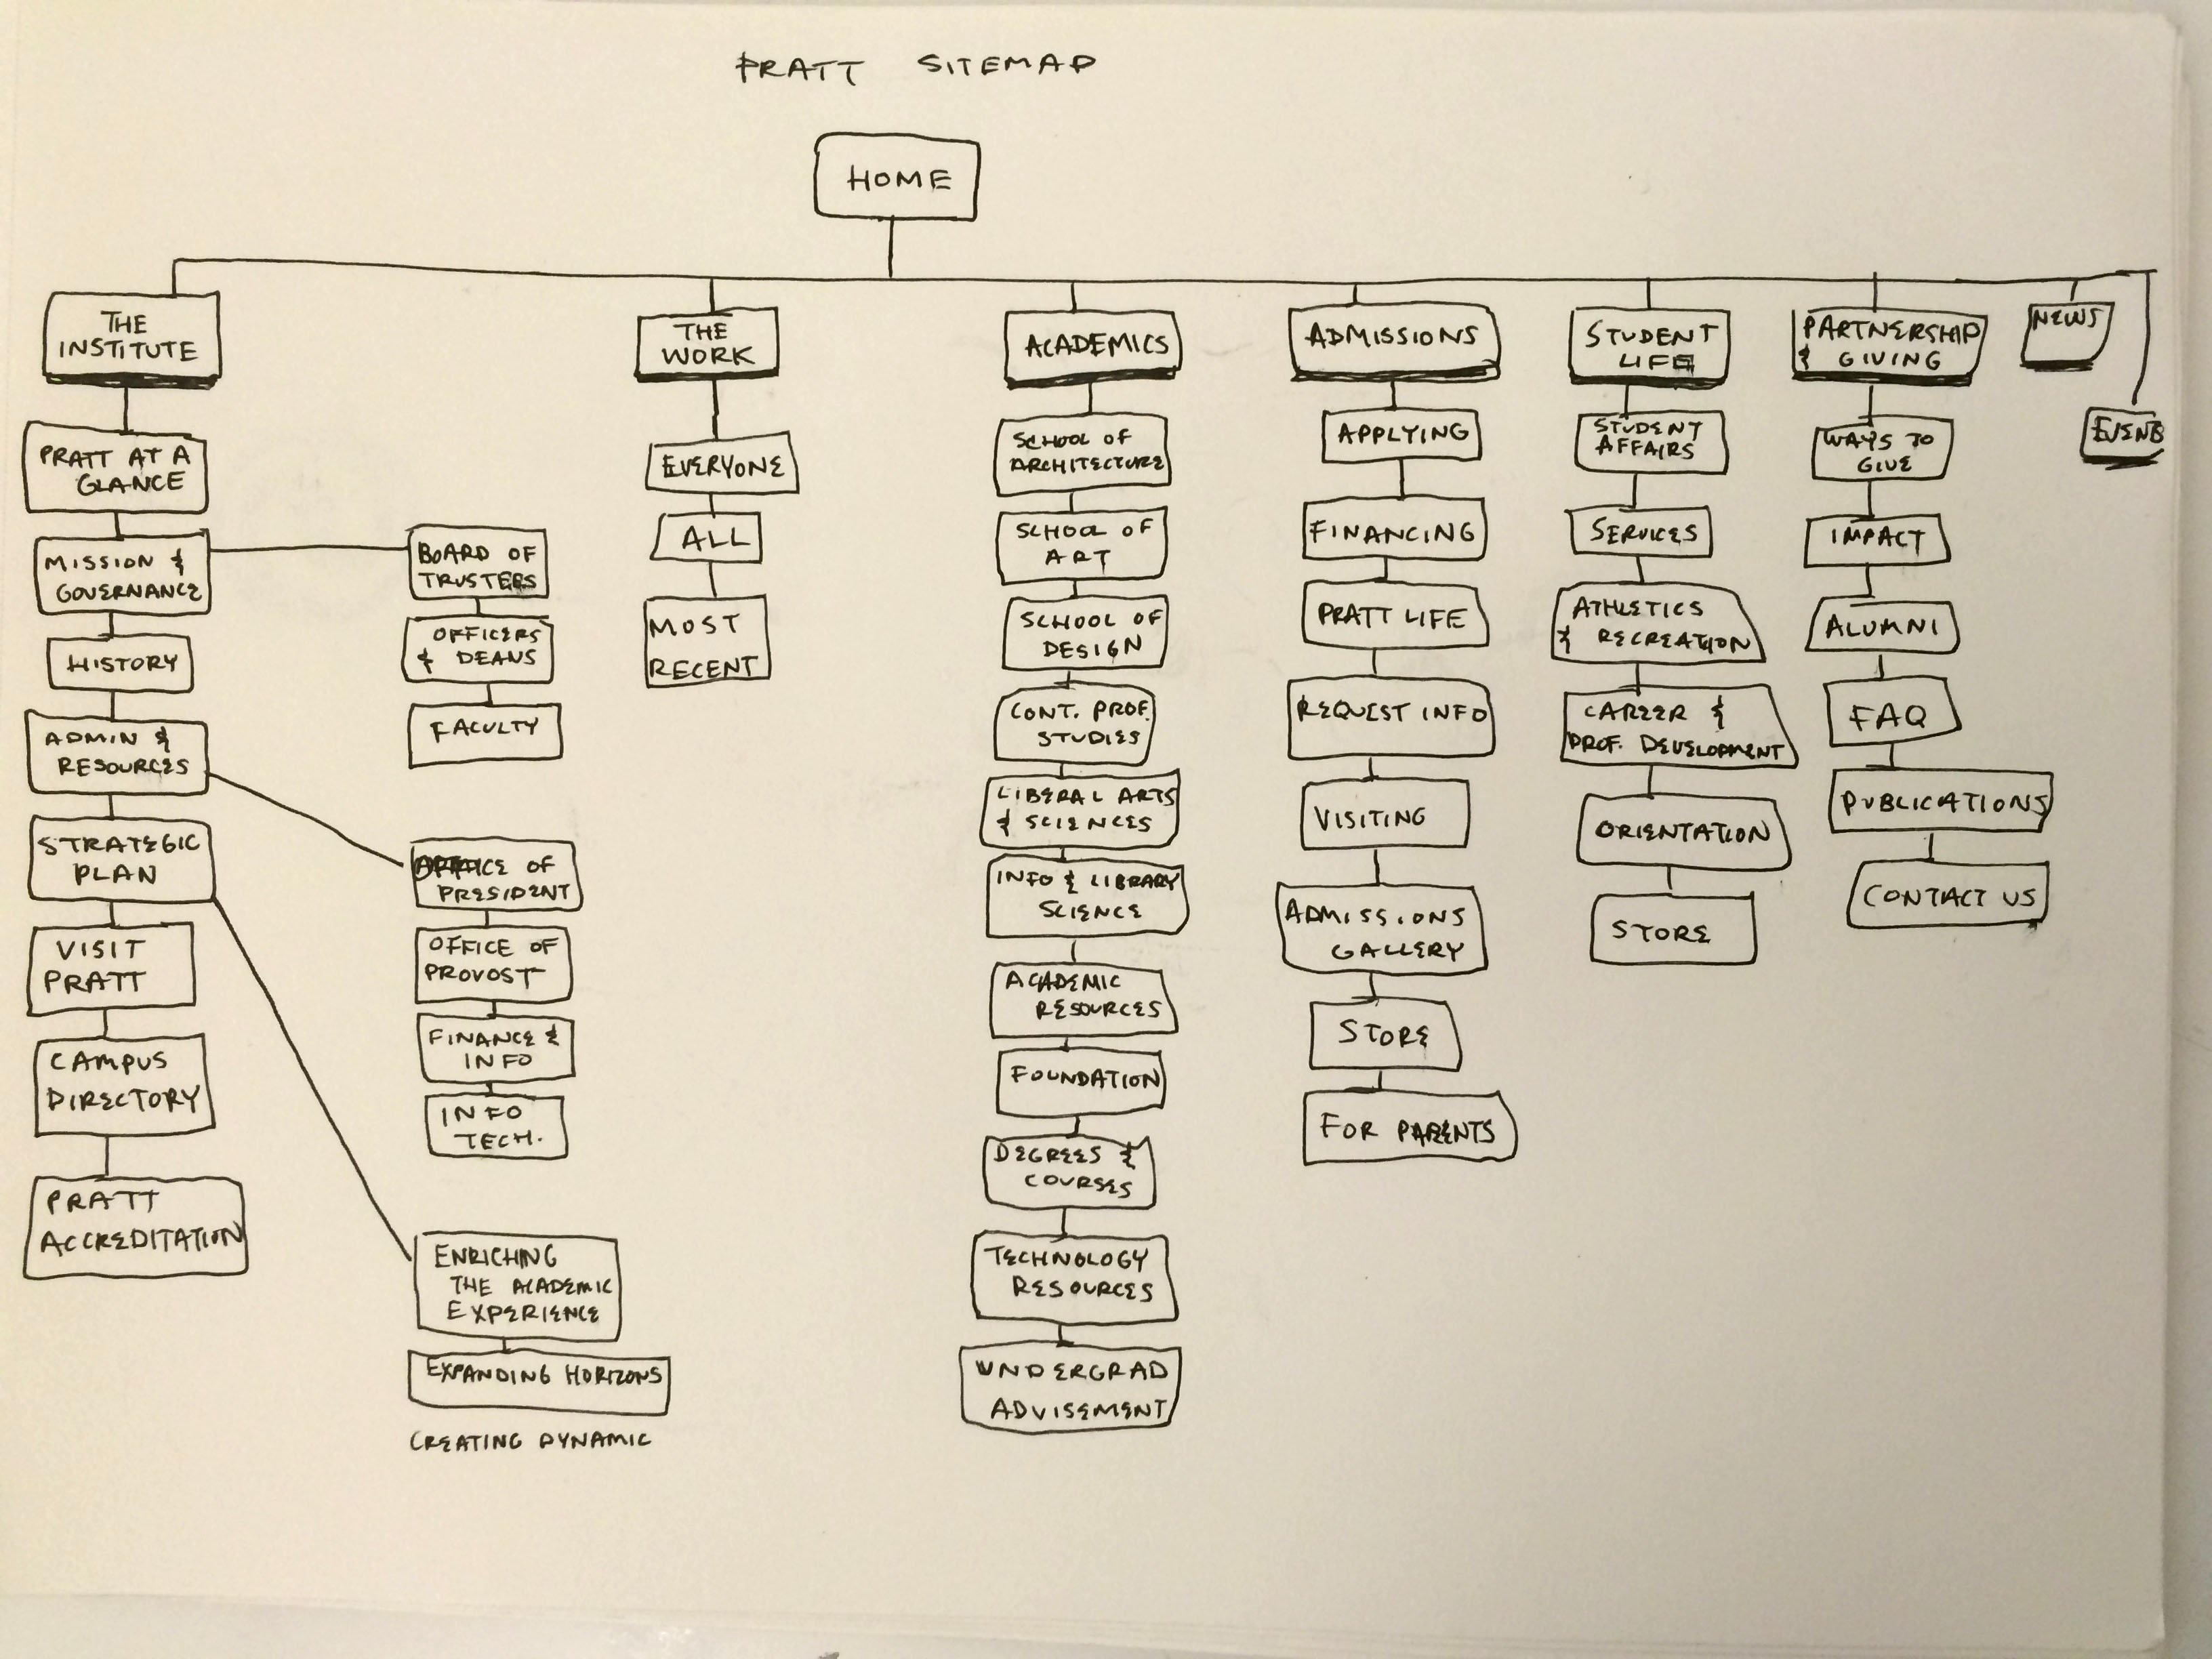 PRATT SITEMAP
HOME
THE
INSTITUTE
PRATT AT A
GLANCE
MISSION &
GOVERNANCE
HISTORY
ADMIN &
RESOURCES
STRATEGIC
PLAN
VISIT
PRATT
CAMPUS
DIRECTORY
PRATT
ACCREDITATION
BOARD OF
TRUSTEES
OFFICERS
& DEANS
FACULTY
OFFICE OF
PRESIDENT
OFFICE OF
PROVOST
FINANCE &
INFO
INFO
TECH.
ENRICHING
THE ACADEMIC
EXPERIENCE
EXPANDING HORIZONS
CREATING DYNAMIC
THE
WORK
EVERYONE
ALL
MOST
RECENT
ACADEMICS
SCHOOL OF
ARCHITECTURE
SCHOOL OF
ART
SCHOOL OF
DESIGN
CONT. PROF.
STUDIES
LIBERAL ARTS
& SCIENCES
INFO & LIBRARY
SCIENCE
ACADEMIC
RESOURCES
FOUNDATION
DEGREES &
COURSES
TECHNOLOGY
RESOURCES
UNDERGRAD
ADVISEMENT
ADMISSIONS
APPLYING
FINANCING
PRATT LIFE
REQUEST INFO
VISITING
ADMISSIONS
GALLERY
STORE
FOR PARENTS
STUDENT
LIFE
STUDENT
AFFAIRS
SERVICES
ATHLETICS
& RECREATION
CAREER &
PROF. DEVELOPMENT
ORIENTATION
STORE
PARTNERSHIP
& GIVING
WAYS TO
GIVE
IMPACT
ALUMNI
FAQ
PUBLICATIONS
CONTACT US
NEWS
EVENTS